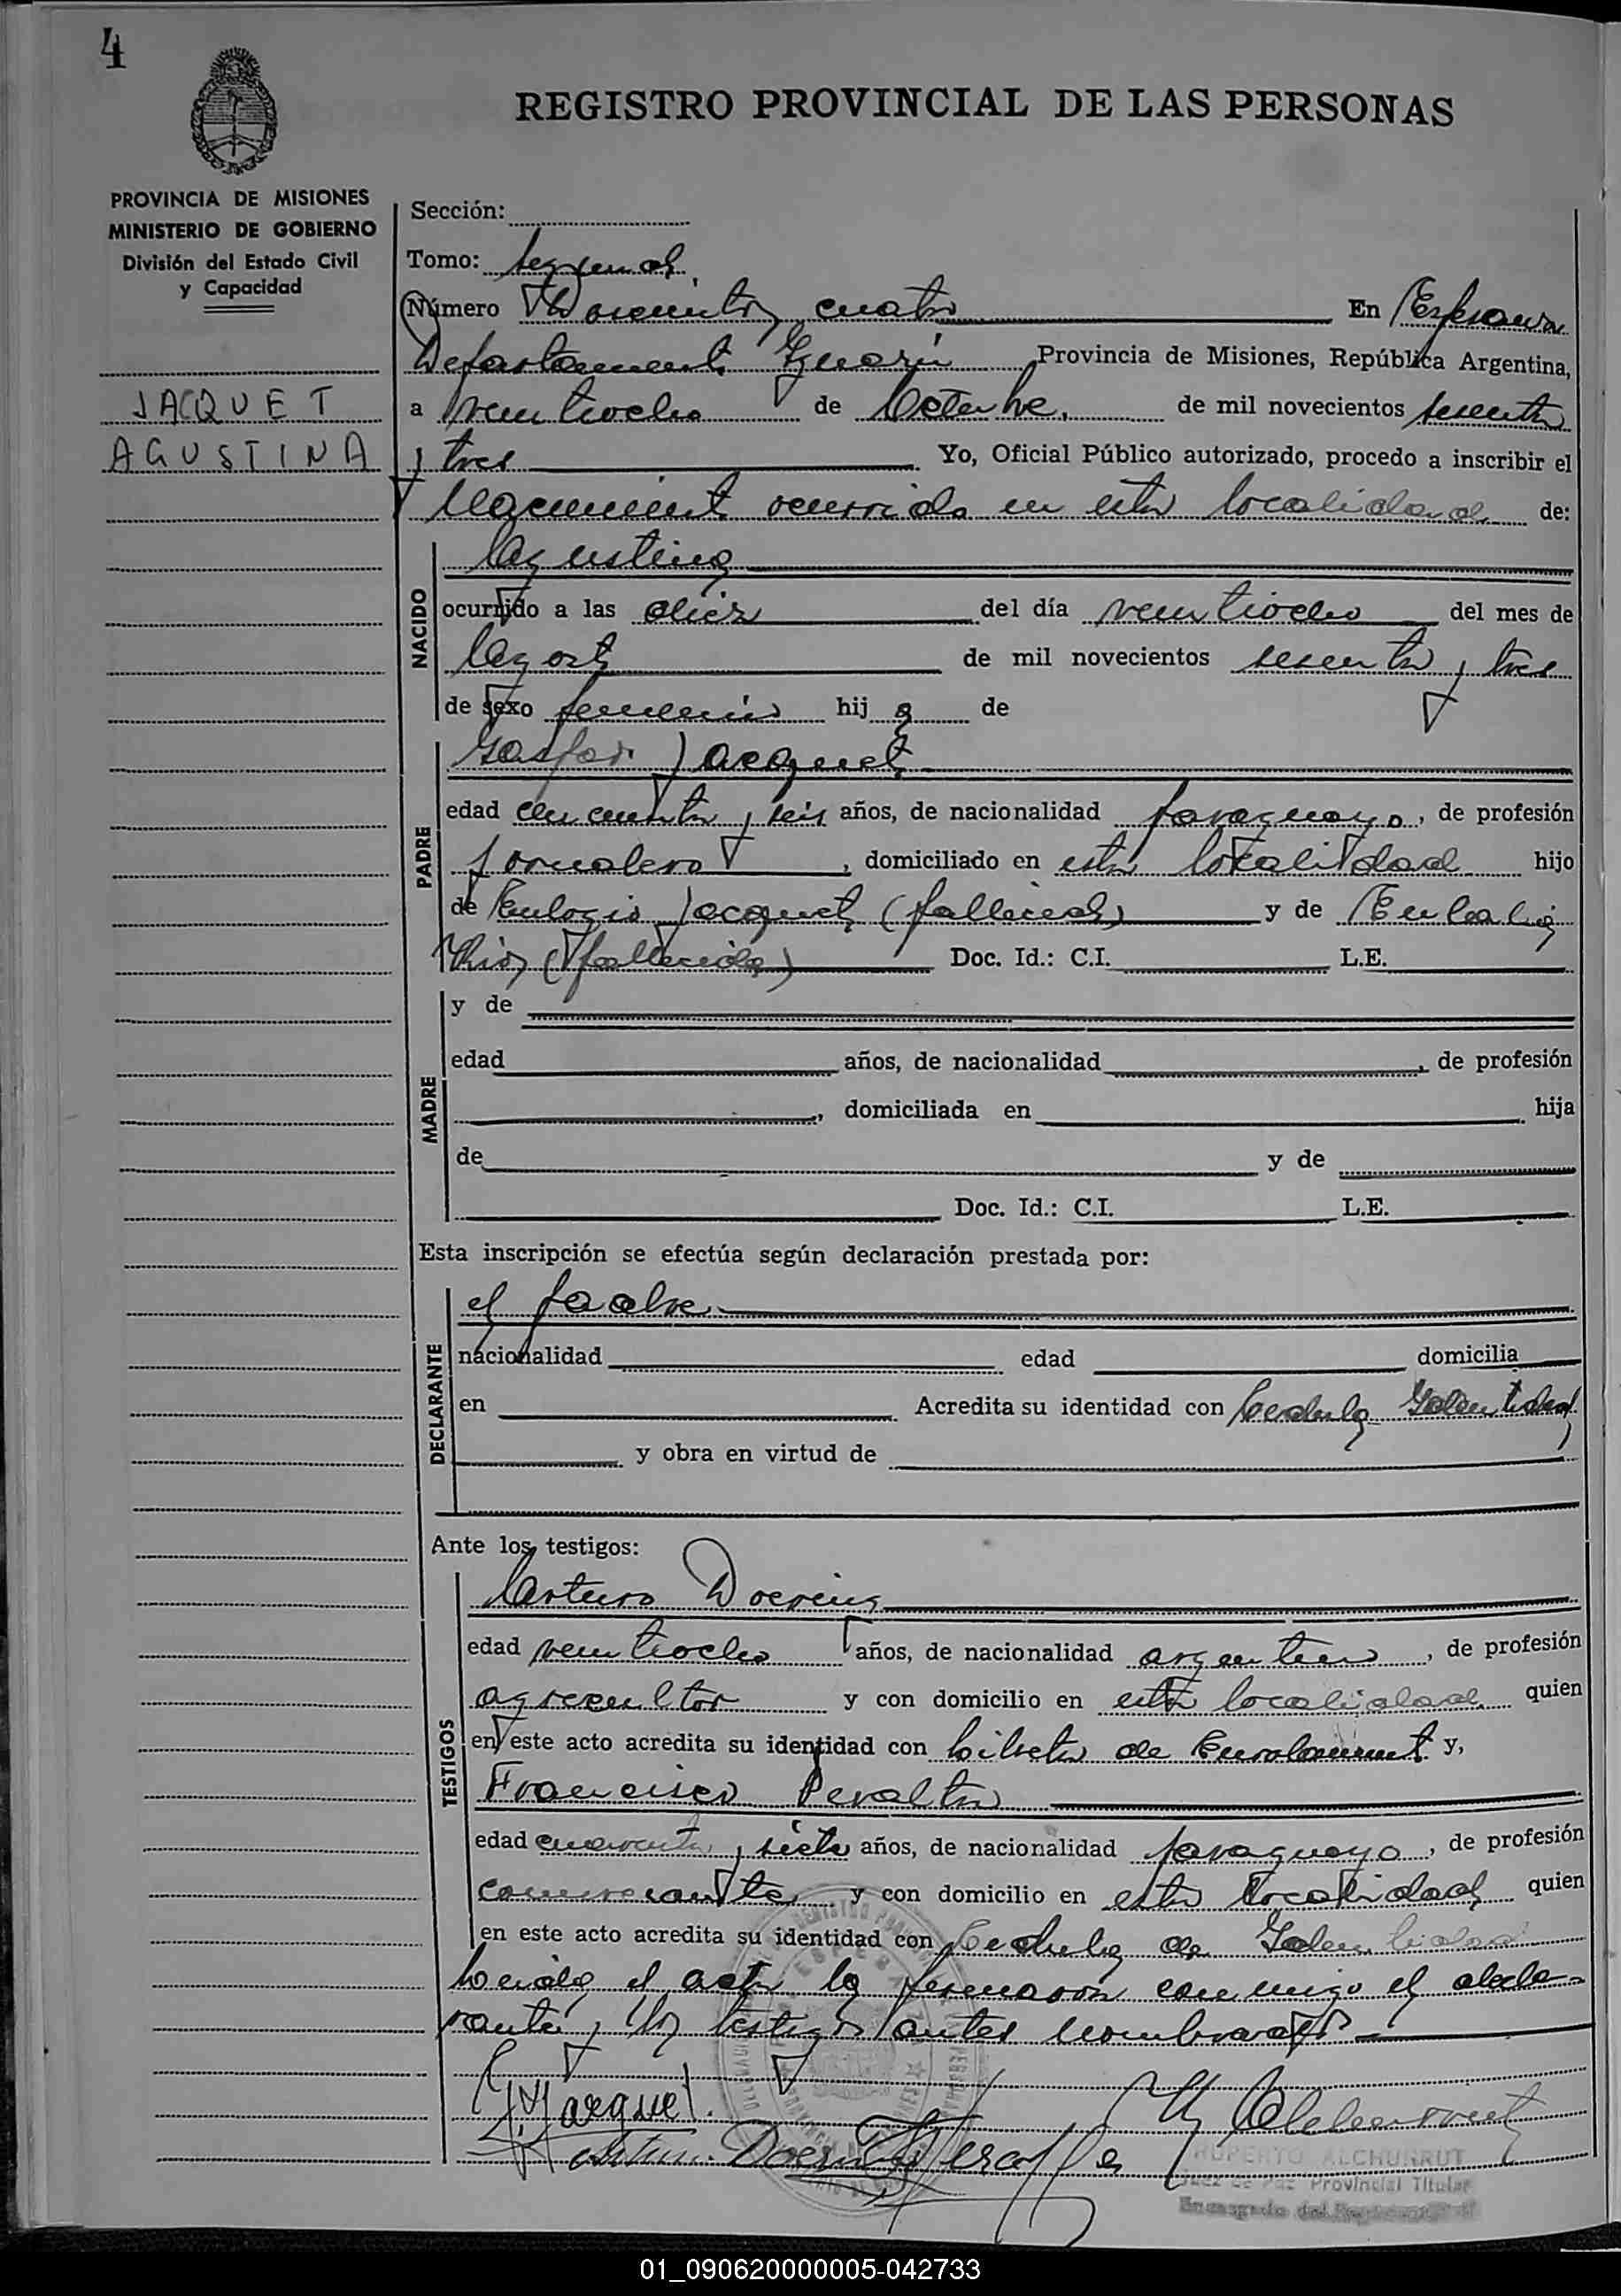 4
REGISTRO PROVINCIAL DE LAS PERSONAS
PROVINCIA DE MISIONES
MINISTERIO DE GOBIERNO
División del Estado Civil
y Capacidad
JACQUET
AGUSTINA
Sección:
Tomo: segundo
Número Doscientos cuatro En Esperanza
Departamento Guaraní Provincia de Misiones, República Argentina,
a veintiocho de Octubre de mil novecientos sesenta
y tres Yo, Oficial Público autorizado, procedo a inscribir el
Nacimiento ocurrido en esta localidad de:
NACIDO
Agustina
ocurrido a las diez del día veintiocho del mes de
Agosto de mil novecientos sesenta y tres
de sexo femenino hij a de
PADRE
Gaspar Jacquet
edad cincuenta y seis años, de nacionalidad paraguayo, de profesión
jornalero, domiciliado en esta localidad hijo
de Eulogio Jacquet (fallecido) y de Eulalia
(fallecida) Doc. Id.: C.I. L.E.
MADRE
y de
edad años, de nacionalidad, de profesión
, domiciliada en hija
de y de
Doc. Id.: C.I. L.E.
Esta inscripción se efectúa según declaración prestada por:
DECLARANTE
el padre
nacionalidad edad domicilia
en Acredita su identidad con Cedula Identidad
y obra en virtud de
Ante los testigos:
TESTIGOS
Arturo Doering
edad veintiocho años, de nacionalidad argentino, de profesión
agricultor y con domicilio en esta localidad quien
en este acto acredita su identidad con Libreta de Enrolamiento y,
Francisco Peralta
edad cuarenta y siete años, de nacionalidad paraguayo, de profesión
comerciante y con domicilio en esta localidad quien
en este acto acredita su identidad con Cedula de Identidad
Leida el acta la firmaron conmigo el decla-
rante y los testigos antes nombrados
G. Jacquet
Arturo Doering
RUPERTO ALCHURRUT
Juez de Paz Provincial Titular
Encargado del
01_090620000005-042733